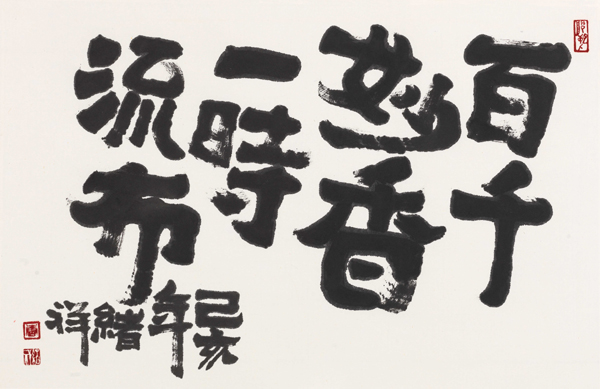 百千
妙香
一時
流布
己亥
年
緒
祥